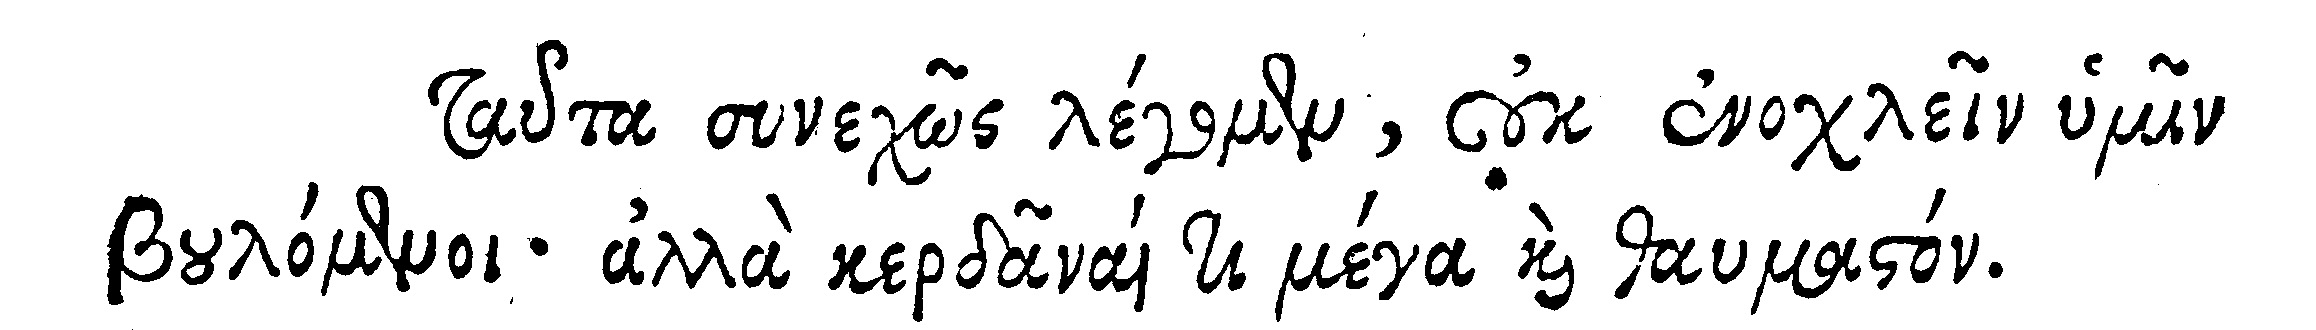 Ταῦτα συνεχῶς λέγομεν, οὐκ ἐνοχλεῖν ὑμῖν
βουλόμενοι· ἀλλὰ κερδᾶναί τι μέγα καὶ θαυμαστόν.